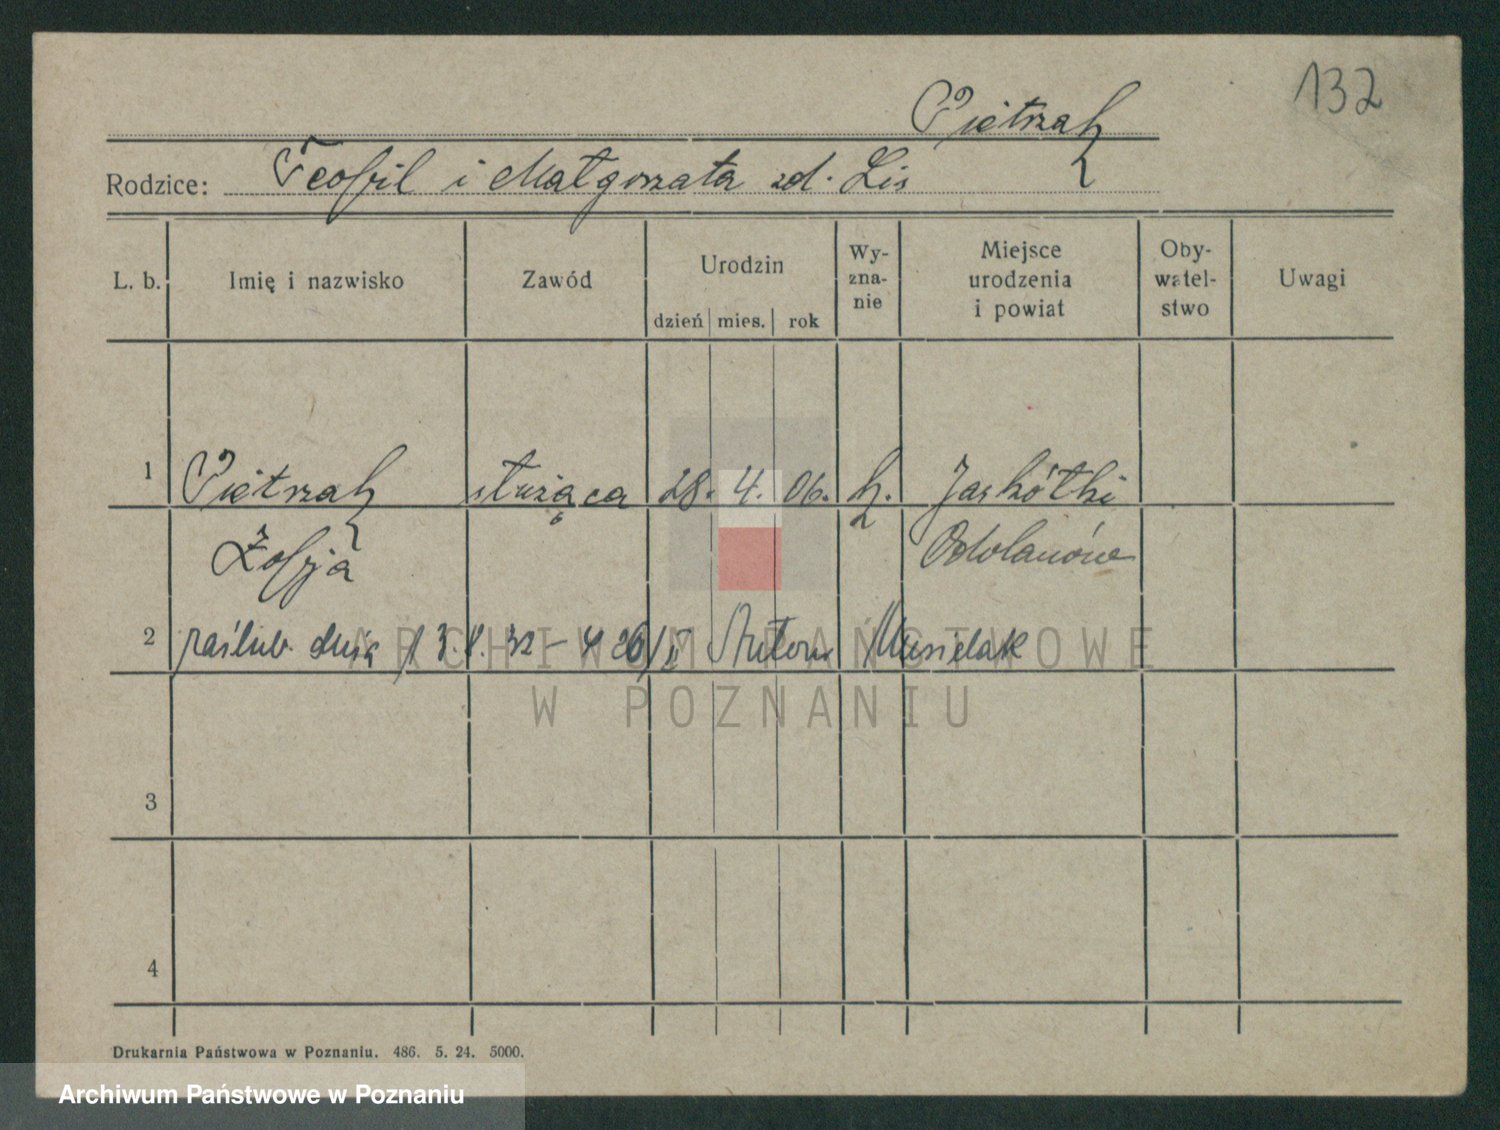 132
Pietrzak
Rodzice: Teofil i Małgorzata zd. Lis
L. b. Imię i nazwisko Zawód Urodzin Wy- Miejsce Oby- Uwagi
zna- urodzenia watel-
nie i powiat stwo
dzień mies. rok
1 Pietrzak służąca 28. 4. 06. k. Jaskółki
Zofja Odolanów
2 zaślub. dnia 13.8.32 – 426/II Antoni Musielak
ARCHIWUM PAŃSTWOWE
W POZNANIU
3
4
Drukarnia Państwowa w Poznaniu. 486. 5. 24. 5000.
Archiwum Państwowe w Poznaniu